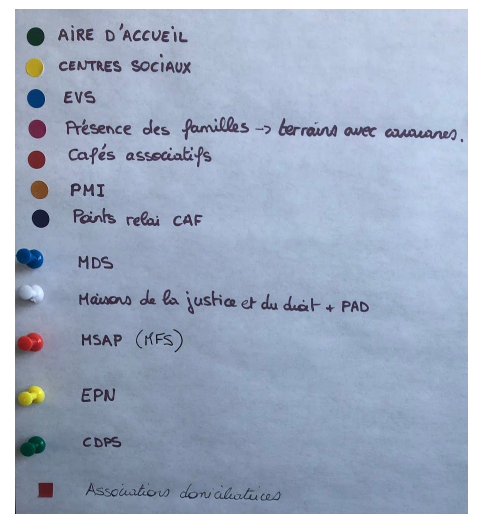 AIRE D'ACCUEIL
CENTRES SOCIAUX
EVS
Présence des familles -> terrains avec caravanes.
Cafés associatifs
PMI
Points relai CAF
MDS
Maisons de la justice et du droit + PAD
MSAP (MFS)
EPN
CDPS
Associations domiciliatrices